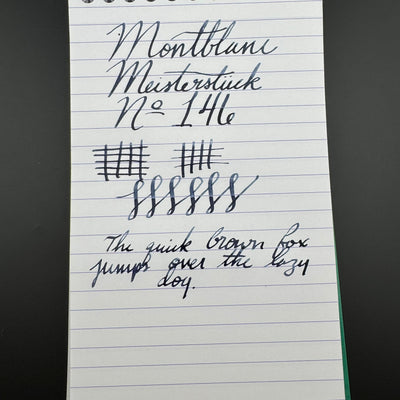 Montblanc
Meisterstück
Nº 146
The quick brown fox
jumps over the lazy
dog.